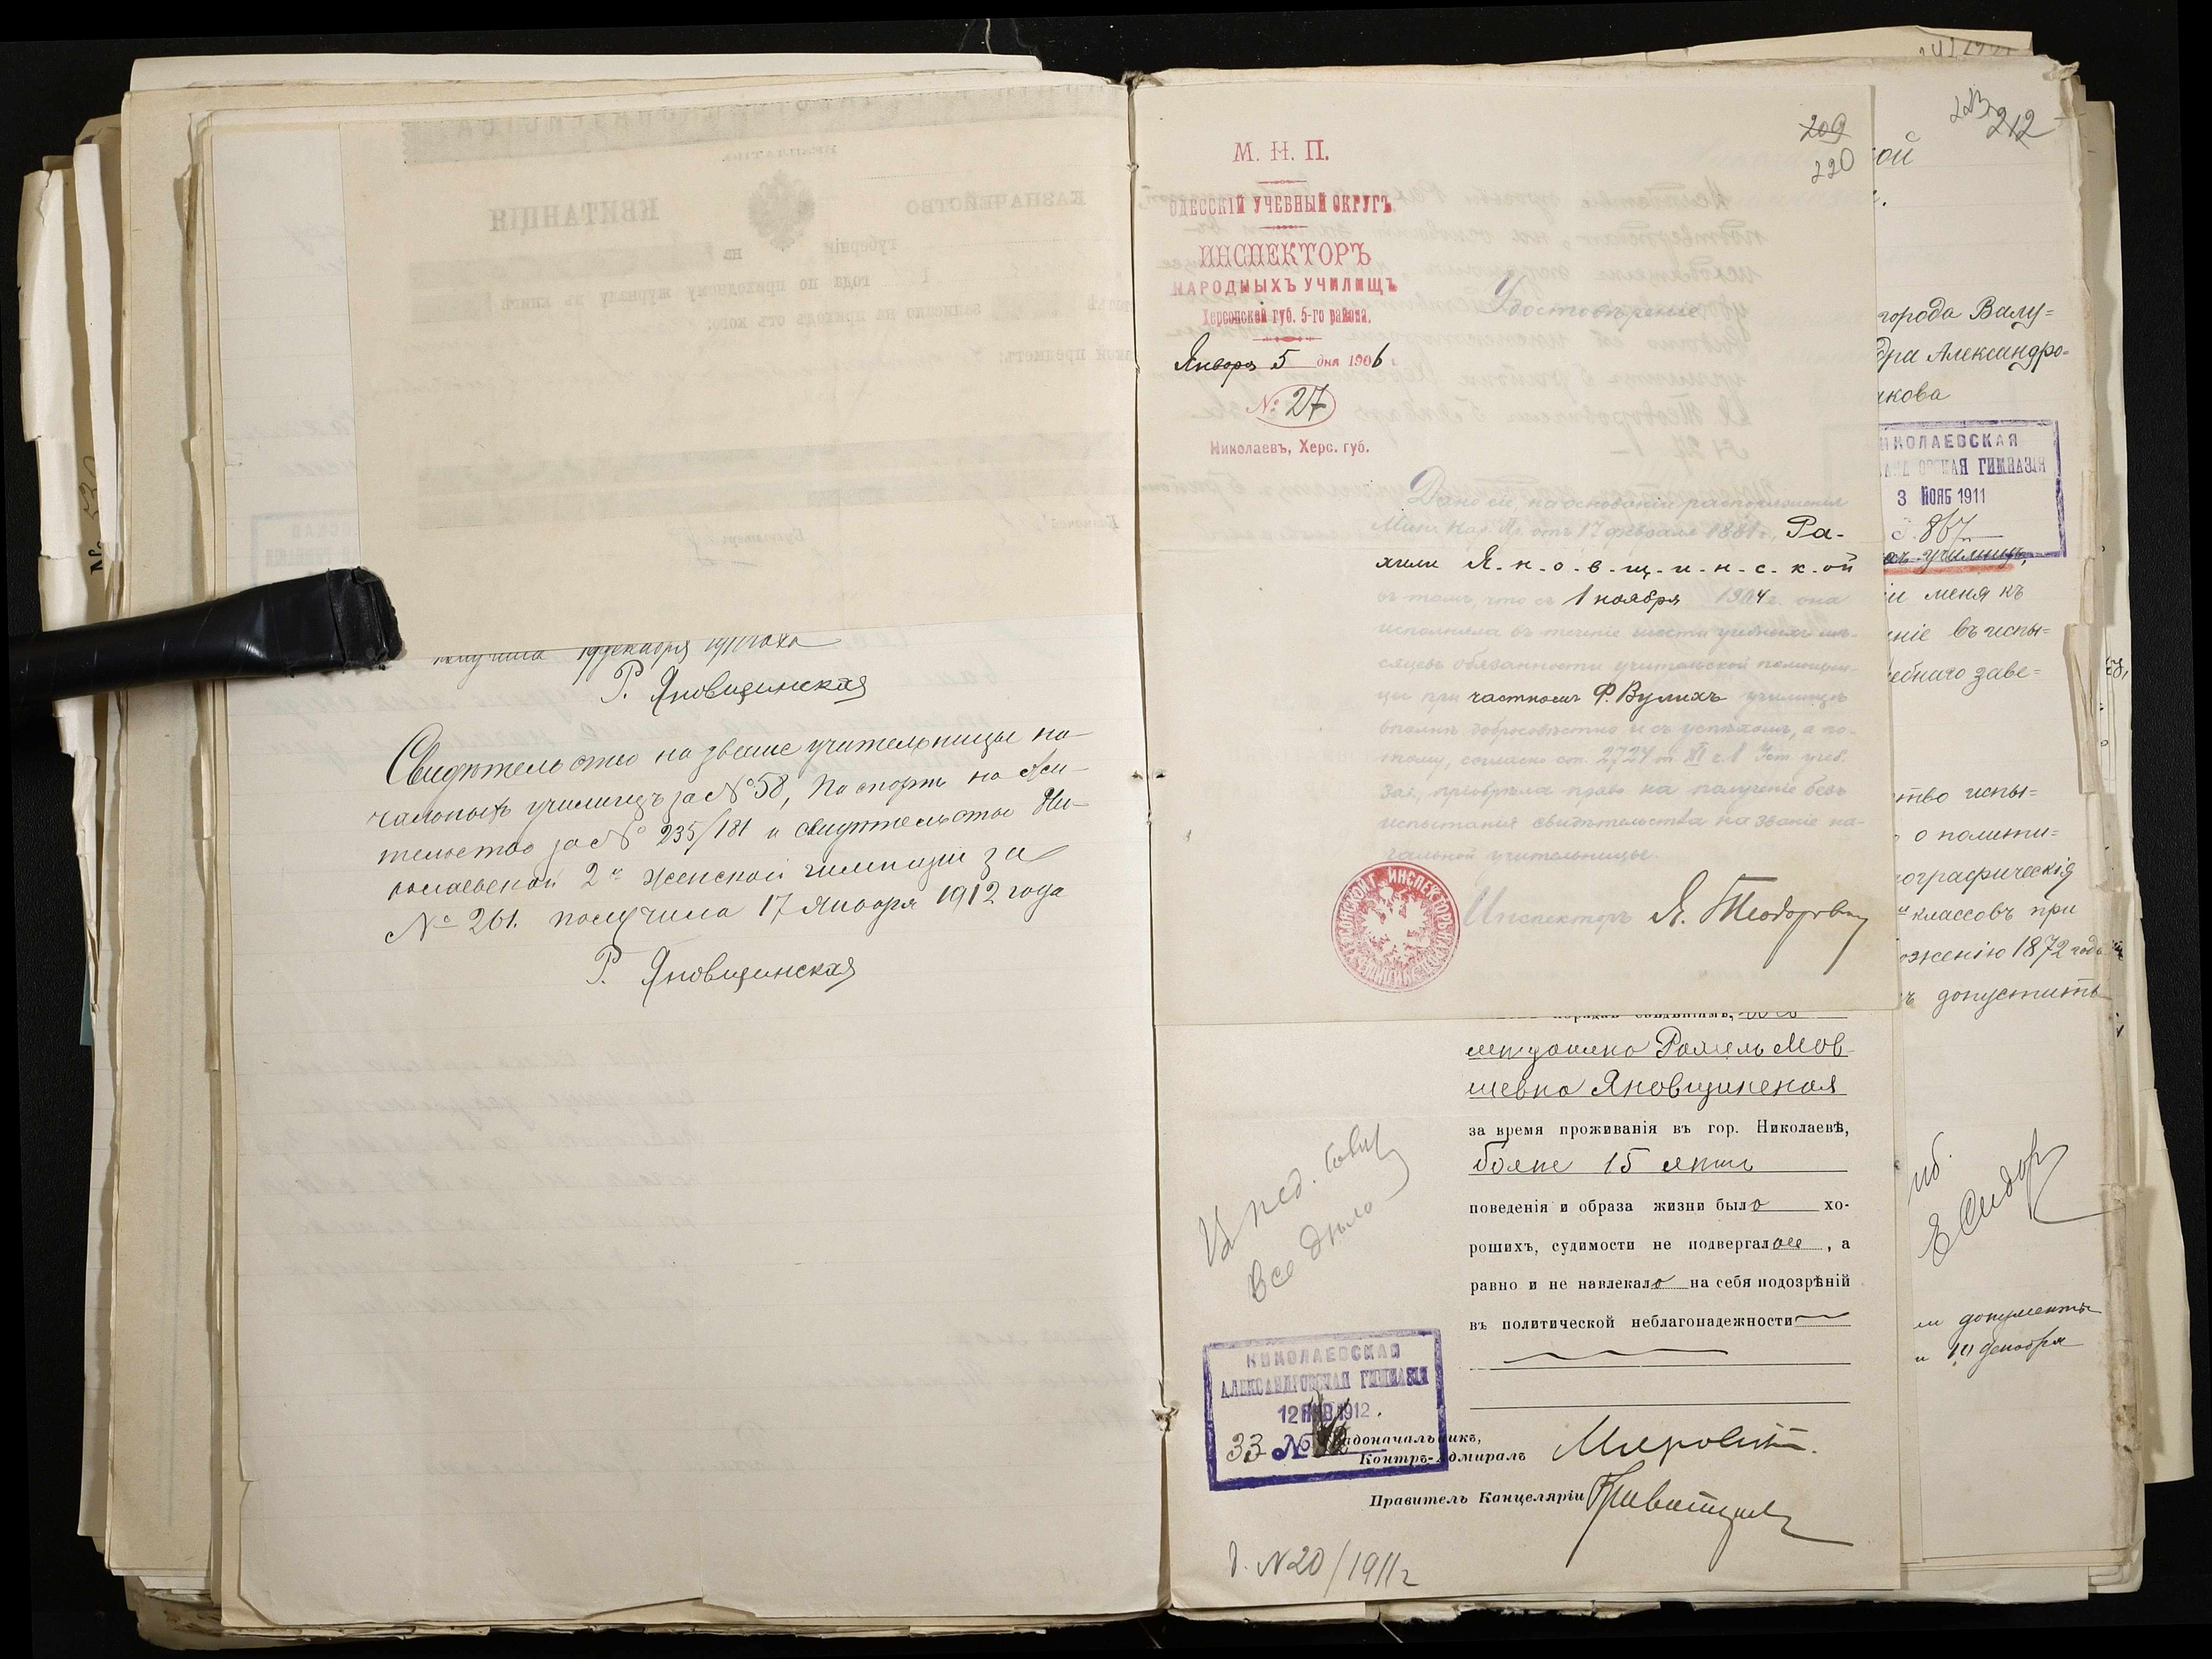 получила 19 декабря 1911 года
Р. Яновщинская
Свидетельство на звание учительницы на-
чальныхъ училищъ за № 58, паспортъ на жи-
тельство за № 235/181 и свидетельство Ни-
колаевской 2й женской гимназіи за
№ 261. получила 17 Января 1912 года
Р. Яновщинская
КВИТАНЦІЯ
КАЗНАЧЕЙСТВО
губерніи на
года по приходному журналу въ книгѣ
записано на приходъ отъ кого:
209
220
М. Н. П.
ОДЕССКІЙ УЧЕБНЫЙ ОКРУГЪ.
ИНСПЕКТОРЪ
НАРОДНЫХЪ УЧИЛИЩЪ
Херсонской губ. 5-го района.
Января 5 дня 1906 г.
№ 27
Николаевъ, Херс. губ.
Удостовѣреніе
Дано сіе, на основаніи распоряженія
Мин. Нар. Пр. отъ 17 февраля 1881 г., Ра-
хили Я-н-о-в-щ-и-н-с-к-ой
въ томъ, что съ 1 ноября 1904 г. она
исполняла въ теченіе шести учебныхъ мѣ-
сяцевъ обязанности учительской помощни-
цы при частномъ Ф. Вулихъ училищѣ
вполнѣ добросовѣстно и съ успѣхомъ, а по-
тому, согласно ст. 2724 т. XI ч. I Уст. учеб.
зав., пріобрѣла право на полученіе безъ
испытанія свидѣтельства на званіе на-
чальной учительницы.
Инспекторъ Я. Теодорович
порядкѣ свѣдѣніямъ,
мѣщанка Рахиль Мов-
шевна Яновщинская
за время проживанія въ гор. Николаевѣ,
болѣе 15 лѣтъ
поведенія и образа жизни была хо-
рошихъ, судимости не подвергалась, а
равно и не навлекала на себя подозрѣній
въ политической неблагонадежности
Въ пед. совѣт
Все дѣло
НИКОЛАЕВСКАЯ
АЛЕКСАНДРОВСКАЯ ГИМНАЗІЯ
12 ЯНВ 1912.
33 №
Градоначальникъ,
Контръ-Адмиралъ
Правитель Канцеляріи
д. № 20/1911 г
212
ой
города Валу=
дра Александро=
икова
НИКОЛАЕВСКАЯ
ГИМНАЗІЯ
3 НОЯБ 1911
867
училищъ,
ти меня къ
ніе въ испы=
ебнаго заве=
ство испы=
о полити=
ографическія
классовъ при
оженію 1872 года
допустить
документы
декабря